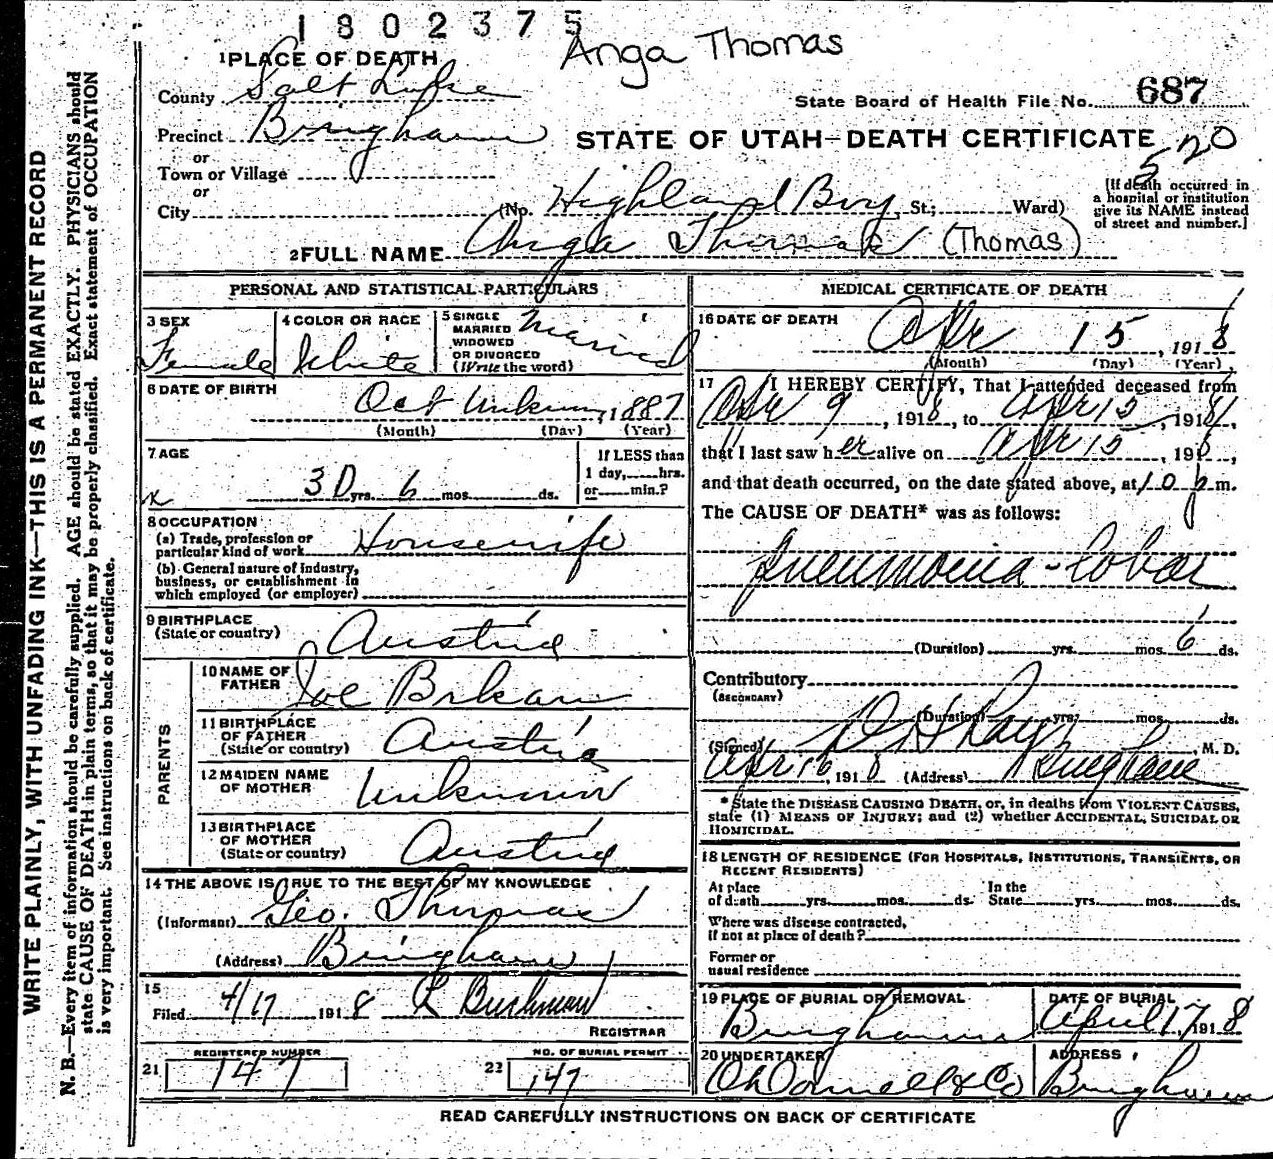 1802375
Anga Thomas
1 PLACE OF DEATH
County Salt Lake
State Board of Health File No. 687
Precinct Bingham
STATE OF UTAH—DEATH CERTIFICATE
520
or
Town or Village
or
City (No. Highland Boy, St.; Ward)
[If death occurred in
a hospital or institution
give its NAME instead
of street and number.]
2 FULL NAME Anga Thomas (Thomas)
PERSONAL AND STATISTICAL PARTICULARS
3 SEX
Female
4 COLOR OR RACE
White
5 SINGLE
MARRIED
WIDOWED
OR DIVORCED
(Write the word)
Married
6 DATE OF BIRTH
Oct Unknown, 1887
(Month) (Day) (Year)
7 AGE
30 yrs. 6 mos. ds.
If LESS than
1 day, hrs.
or min.?
8 OCCUPATION
(a) Trade, profession or
particular kind of work Housewife
(b) General nature of industry,
business, or establishment in
which employed (or employer)
9 BIRTHPLACE
(State or country) Austria
PARENTS
10 NAME OF
FATHER Joe Brkan
11 BIRTHPLACE
OF FATHER
(State or country) Austria
12 MAIDEN NAME
OF MOTHER Unknown
13 BIRTHPLACE
OF MOTHER
(State or country) Austria
14 THE ABOVE IS TRUE TO THE BEST OF MY KNOWLEDGE
(Informant) Geo. Thomas
(Address) Bingham
15
Filed 4/17 1918 R Bushman
REGISTRAR
21 REGISTERED NUMBER
147
22 NO. OF BURIAL PERMIT
147
MEDICAL CERTIFICATE OF DEATH
16 DATE OF DEATH
Apr 15, 1918
(Month) (Day) (Year)
17 I HEREBY CERTIFY, That I attended deceased from
Apr 9, 1918, to Apr 15, 1918,
that I last saw her alive on Apr 15, 1918,
and that death occurred, on the date stated above, at 10 p m.
The CAUSE OF DEATH* was as follows:
Pneumonia - lobar
(Duration) yrs. mos. 6 ds.
Contributory
(SECONDARY)
(Duration) yrs. mos. ds.
(Signed) Ray, M. D.
Apr 16 1918 (Address) Bingham
* State the DISEASE CAUSING DEATH, or, in deaths from VIOLENT CAUSES,
state (1) MEANS OF INJURY; and (2) whether ACCIDENTAL, SUICIDAL OR
HOMICIDAL.
18 LENGTH OF RESIDENCE (FOR HOSPITALS, INSTITUTIONS, TRANSIENTS, OR
RECENT RESIDENTS)
At place
of death yrs. mos. ds.
In the
State yrs. mos. ds.
Where was disease contracted,
if not at place of death?
Former or
usual residence
19 PLACE OF BURIAL OR REMOVAL
Bingham
DATE OF BURIAL
April 17, 1918
20 UNDERTAKER
O'Donnell & Co
ADDRESS
Bingham
READ CAREFULLY INSTRUCTIONS ON BACK OF CERTIFICATE
WRITE PLAINLY, WITH UNFADING INK—THIS IS A PERMANENT RECORD
N. B.—Every item of information should be carefully supplied. AGE should be stated EXACTLY. PHYSICIANS should
state CAUSE OF DEATH in plain terms, so that it may be properly classified. Exact statement of OCCUPATION
is very important. See instructions on back of certificate.